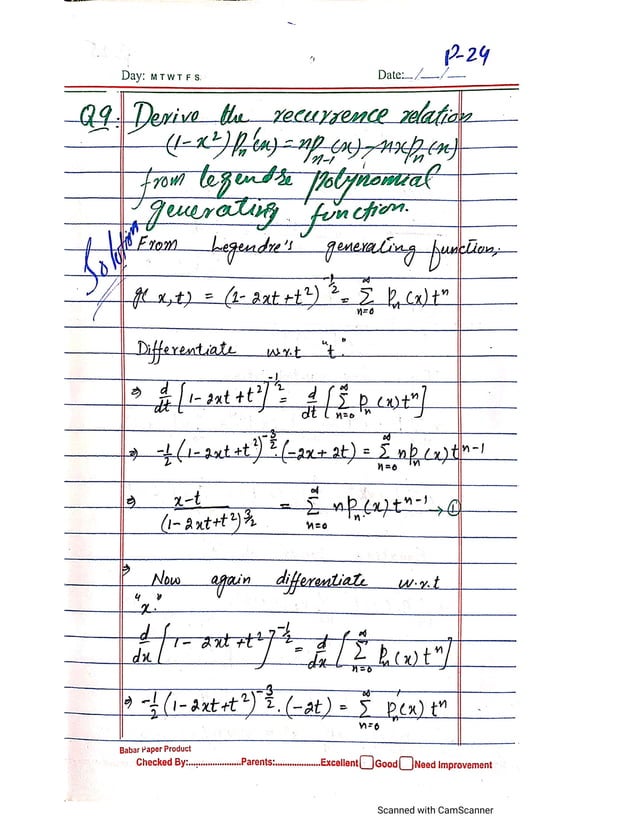 P-24
Day: M T W T F S Date:__/__/__
Q9: Derive the recurrence relation
(1-x²)Pₙ'(x) = nPₙ₋₁(x) - nxPₙ(x)
from legendre polynomial
generating function.
Solution
From Legendre's generating function,
g(x,t) = (1-2xt+t²)^(-1/2) = Σ_{n=0}^{∞} Pₙ(x)tⁿ
Differentiate w.r.t "t."
⇒ d/dt [1-2xt+t²]^(-1/2) = d/dt [Σ_{n=0}^{∞} Pₙ(x)tⁿ]
⇒ -1/2 (1-2xt+t²)^(-3/2) . (-2x+2t) = Σ_{n=0}^{∞} nPₙ(x)t^(n-1)
⇒ (x-t)/(1-2xt+t²)^(3/2) = Σ_{n=0}^{∞} nPₙ(x)t^(n-1) → ①
⇒ Now again differentiate w.r.t
"x."
d/dx [1-2xt+t²]^(-1/2) = d/dx [Σ_{n=0}^{∞} Pₙ(x)tⁿ]
⇒ -1/2 (1-2xt+t²)^(-3/2) . (-2t) = Σ_{n=0}^{∞} Pₙ'(x)tⁿ
Babar Paper Product
Checked By:......................Parents:..................Excellent Good Need Improvement
Scanned with CamScanner